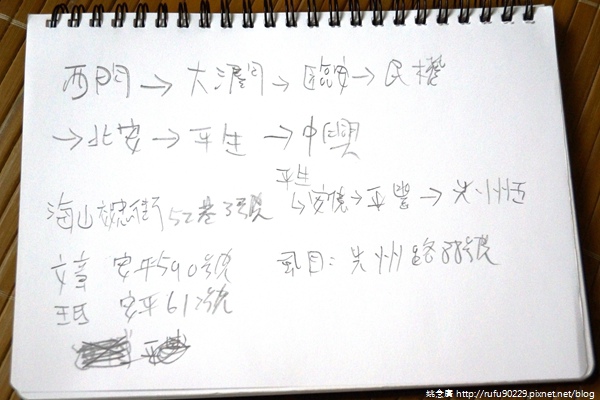 西門→大潤→臨安→民權
→北安→平生→中興
平生
海山 效忠街52巷7號 ↳安悅→平豐→州
文章 安平590號 虱目:光州路88號
王氏 安平612號
平
姚念廣 / http://rufu90229.pixnet.net/blog